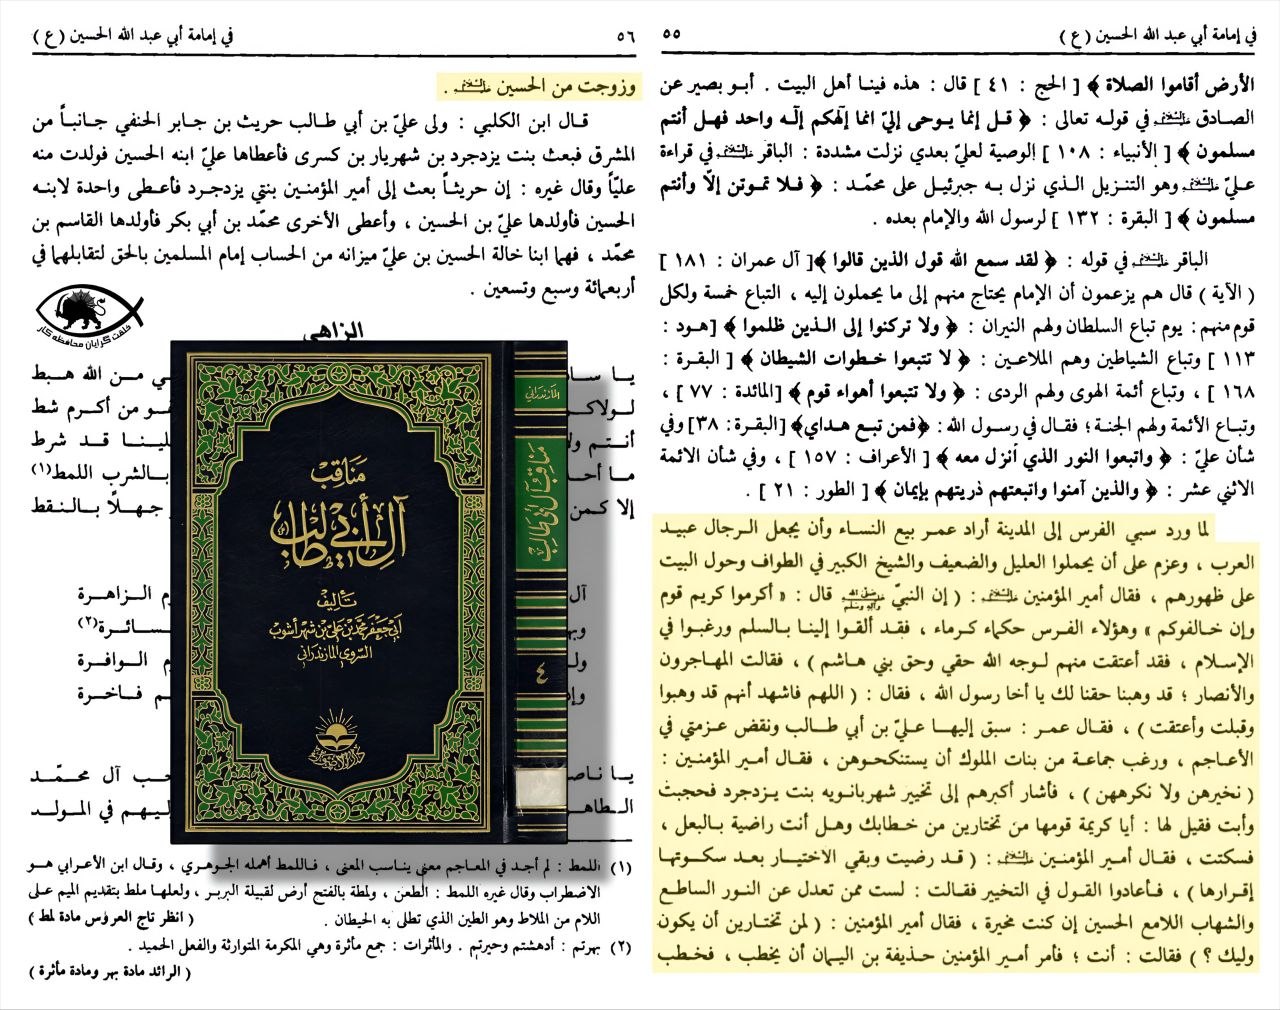 في إمامة أبي عبد الله الحسين (ع)
٥٥
الأرض أقاموا الصلاة ﴾ [ الحج : ٤١ ] قال : هذه فينا أهل البيت . أبو بصير عن
الصادق عليه السلام في قوله تعالى : ﴿ قل إنما يوحى إليّ انما إلهكم إلٓه واحد فهل أنتم
مسلمون ﴾ [ الأنبياء : ١٠٨ ] الوصية لعليّ بعدي نزلت مشددة : الباقر عليه السلام في قراءة
عليّ عليه السلام وهو التنزيل الذي نزل به جبرئيل على محمّد : ﴿ فلا تموتن إلّا وأنتم
مسلمون ﴾ [ البقرة : ١٣٢ ] لرسول الله والإمام بعده .
الباقر عليه السلام في قوله : ﴿ لقد سمع الله قول الذين قالوا ﴾[ آل عمران : ١٨١ ]
( الآية ) قال هم يزعمون أن الإمام يحتاج منهم إلى ما يحملون إليه ، التباع خمسة ولكل
قوم منهم : يوم تباع السلطان ولهم النيران : ﴿ ولا تركنوا إلى الذين ظلموا ﴾ [هود :
١١٣ ] وتباع الشياطين وهم الملاعين : ﴿ لا تتبعوا خطوات الشيطان ﴾ [ البقرة :
١٦٨ ] ، وتباع أئمة الهوى ولهم الردى : ﴿ ولا تتبعوا أهواء قوم ﴾ [المائدة : ٧٧ ] ،
وتباع الأئمة ولهم الجنة ؛ فقال في رسول الله : ﴿فمن تبع هداي﴾ [البقرة: ٣٨] وفي
شأن عليّ : ﴿ واتبعوا النور الذي أنزل معه ﴾ [ الأعراف : ١٥٧ ] ، وفي شأن الائمة
الاثني عشر : ﴿ والذين آمنوا واتبعتهم ذريتهم بإيمان ﴾ [ الطور : ٢١ ] .
لما ورد سبي الفرس إلى المدينة أراد عمر بيع النساء وأن يجعل الرجال عبيد
العرب ، وعزم على أن يحملوا العليل والضعيف والشيخ الكبير في الطواف وحول البيت
على ظهورهم ، فقال أمير المؤمنين عليه السلام : ( إن النبيّ صلى الله عليه وآله وسلم قال : « أكرموا كريم قوم
وإن خالفوكم » وهؤلاء الفرس حكماء كرماء ، فقد ألقوا إلينا بالسلم ورغبوا في
الإسلام ، فقد أعتقت منهم لوجه الله حقي وحق بني هاشم ) ، فقالت المهاجرون
والأنصار ؛ قد وهبنا حقنا لك يا أخا رسول الله ، فقال : ( اللهم فاشهد أنهم قد وهبوا
وقبلت وأعتقت ) ، فقال عمر : سبق إليها عليّ بن أبي طالب ونقض عزمتي في
الأعاجم ، ورغب جماعة من بنات الملوك أن يستنكحوهن ، فقال أمير المؤمنين :
( نخيرهن ولا نكرههن ) ، فأشار أكبرهم إلى تخيير شهربانويه بنت يزدجرد فحجبت
وأبت فقيل لها : أيا كريمة قومها من تختارين من خطابك وهل أنت راضية بالبعل ،
فسكتت ، فقال أمير المؤمنين عليه السلام : ( قد رضيت وبقي الاختيار بعد سكوتها
إقرارها ) ، فأعادوا القول في التخيير فقالت : لست ممن تعدل عن النور الساطع
والشهاب اللامع الحسين إن كنت مخيرة ، فقال أمير المؤمنين : ( لمن تختارين أن يكون
وليك ؟ ) فقالت : أنت ؛ فأمر أمير المؤمنين حذيفة بن اليمان أن يخطب ، فخطب
٥٦
في إمامة أبي عبد الله الحسين (ع)
وزوجت من الحسين عليه السلام .
قال ابن الكلبي : ولى عليّ بن أبي طالب حريث بن جابر الحنفي جانباً من
المشرق فبعث بنت يزدجرد بن شهريار بن كسرى فأعطاها عليّ ابنه الحسين فولدت منه
عليّاً وقال غيره : إن حريثاً بعث إلى أمير المؤمنين بنتي يزدجرد فأعطى واحدة لابنه
الحسين فأولدها عليّ بن الحسين ، وأعطى الأخرى محمّد بن أبي بكر فأولدها القاسم بن
محمّد ، فهما ابنا خالة الحسين بن عليّ ميزانه من الحساب إمام المسلمين بالحق لتقابلهما في
أربعمائة وسبع وتسعين .
خلقت گرایان محافظه کار
الزاهي
يا سا
ي من الله هبط
لولاكـ
فو من أكرم شط
أنتم ولا
لينا قد شرط
ما أحـ
بالشرب اللمط(١)
إلا كمن
جهلاً بالنقط
آل
م الزاهرة
وبهـ
سائرة(٢)
ولـ
م الوافرة
وإذ
م فاخرة
يا ناصـ
حب آل محمّد
الطاهر
ليهم في المولد
المازندراني
مناقب آل أبي طالب
٤
مناقب
آل أبي طالب
تأليف
أبي جعفر محمد بن علي بن شهرآشوب
السروي المازندراني
دار الأضواء
(١) اللمط : لم أجد في المعاجم معنى يناسب المعنى ، فاللمط أهمله الجوهري ، وقال ابن الأعرابي هو
الاضطراب وقال غيره اللمط : الطعن ، ولمطة بالفتح أرض لقبيلة البربر ، ولعلها ملط بتقديم الميم على
اللام من الملاط وهو الطين الذي تطلى به الحيطان . ( انظر تاج العروس مادة لمط )
(٢) بهرتم : أدهشتم وحيرتم . والمأثرات : جمع مأثرة وهي المكرمة المتوارثة والفعل الحميد .
( الرائد مادة بهر ومادة مأثرة )